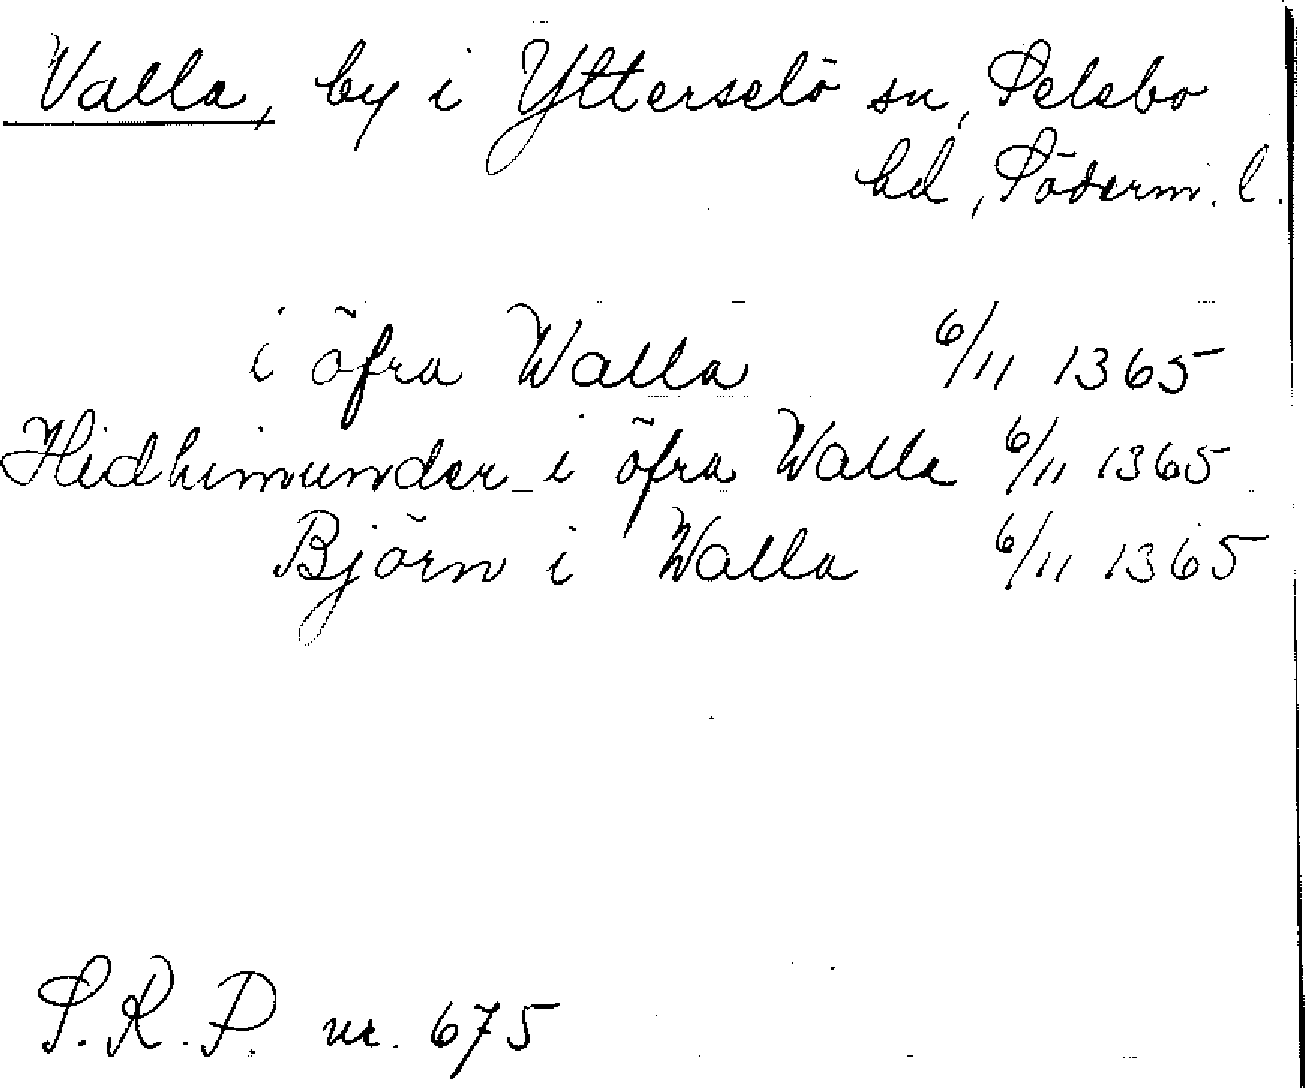 Valla, by i Ytterselö sn, Selebo
hd, Söderm. l.
i öfra Walla 6/11 1365
Hidhimunder i öfra Walla 6/11 1365
Björn i Walla 6/11 1365
S.R.P. nr. 675